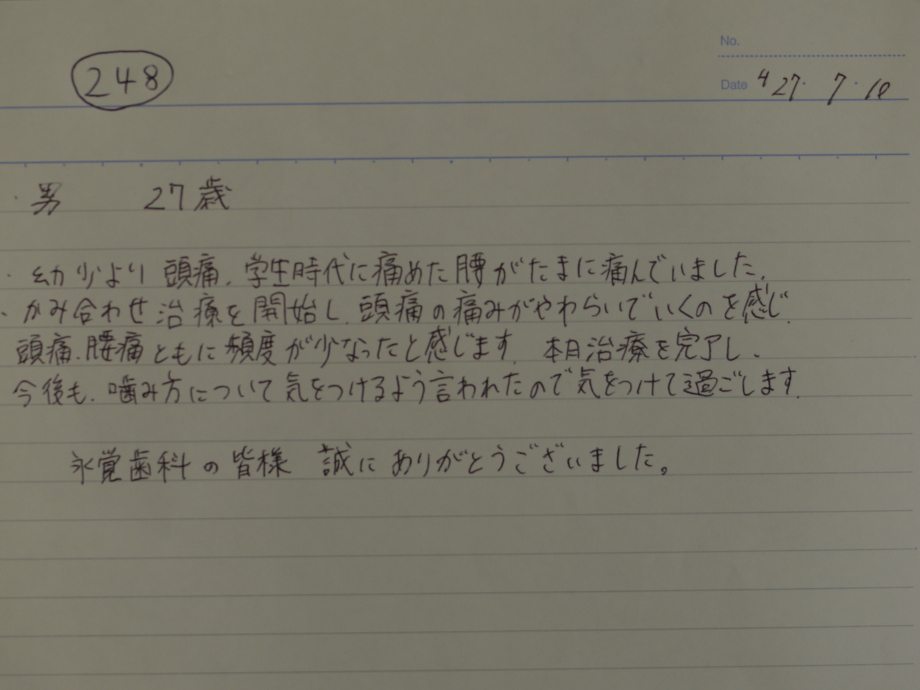 No.
248
Date 4 27. 7. 10
・男 27歳
・幼少より頭痛、学生時代に痛めた腰がたまに痛んでいました。
・かみ合わせ治療を開始し、頭痛の痛みがやわらいでいくのを感じ
頭痛、腰痛ともに頻度が少なったと感じます。本日治療を完了し、
今後も、噛み方について気をつけるよう言われたので気をつけて過ごします。
永覚歯科の皆様 誠にありがとうございました。